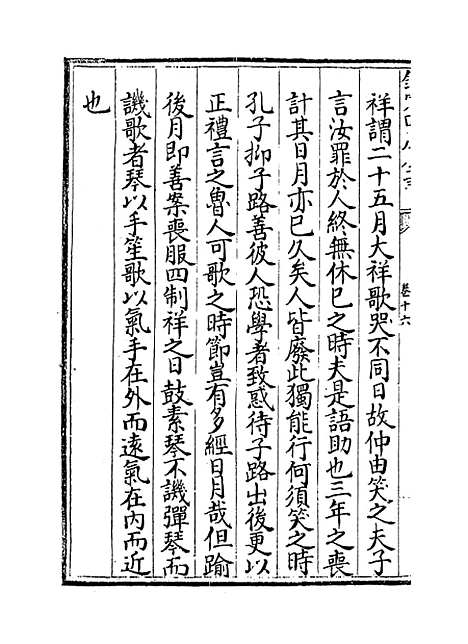 祥謂二十五月大祥歌哭不同日故仲由笑之夫子
言汝罪於人終無休已之時夫是語助也三年之喪
計其日月亦已久矣人皆廢此獨能行何須笑之時
孔子抑子路善彼人恐學者致惑待子路出後更以
正禮言之魯人可歌之時節豈有多經日月哉但踰
後月即善案喪服四制祥之日鼓素琴不譏彈琴而
譏歌者琴以手笙歌以氣手在外而遠氣在內而近
也
卷十六